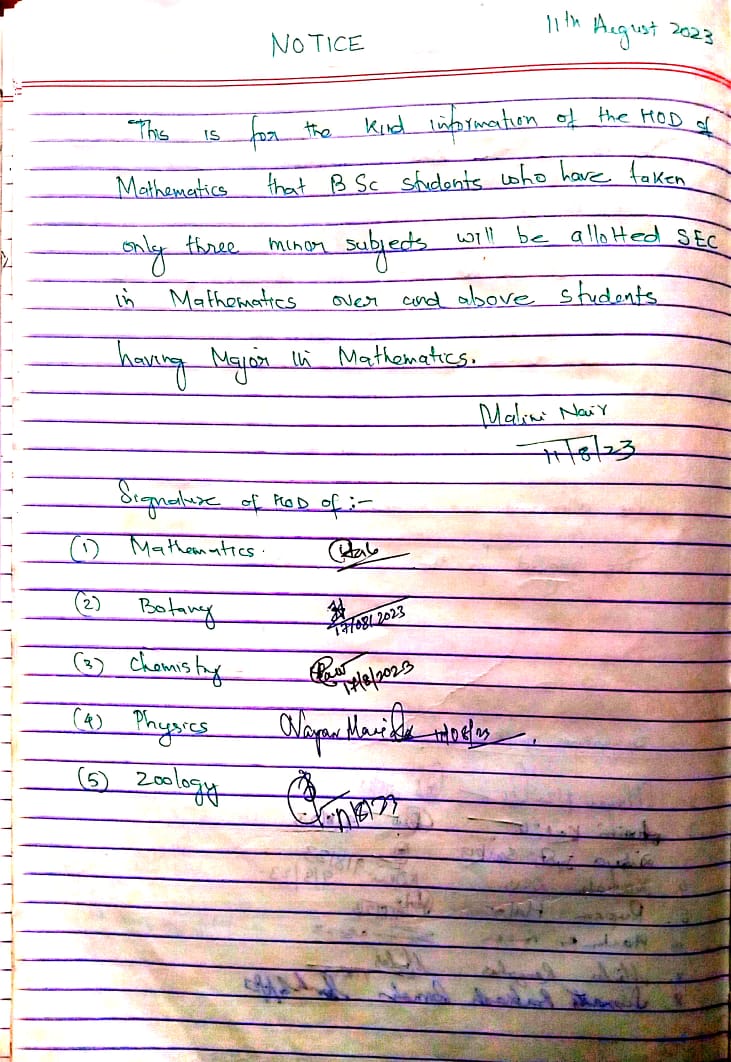 11th August 2023
NOTICE
This is for the kind information of the HOD of
Mathematics that B Sc students who have taken
only three minor subjects will be allotted SEC
in Mathematics over and above students
having Major in Mathematics.
Malini Nair
11/8/23
Signature of HOD of :-
(1) Mathematics.
(2) Botany 17/08/2023
(3) Chemistry 17/8/2023
(4) Physics
(5) Zoology